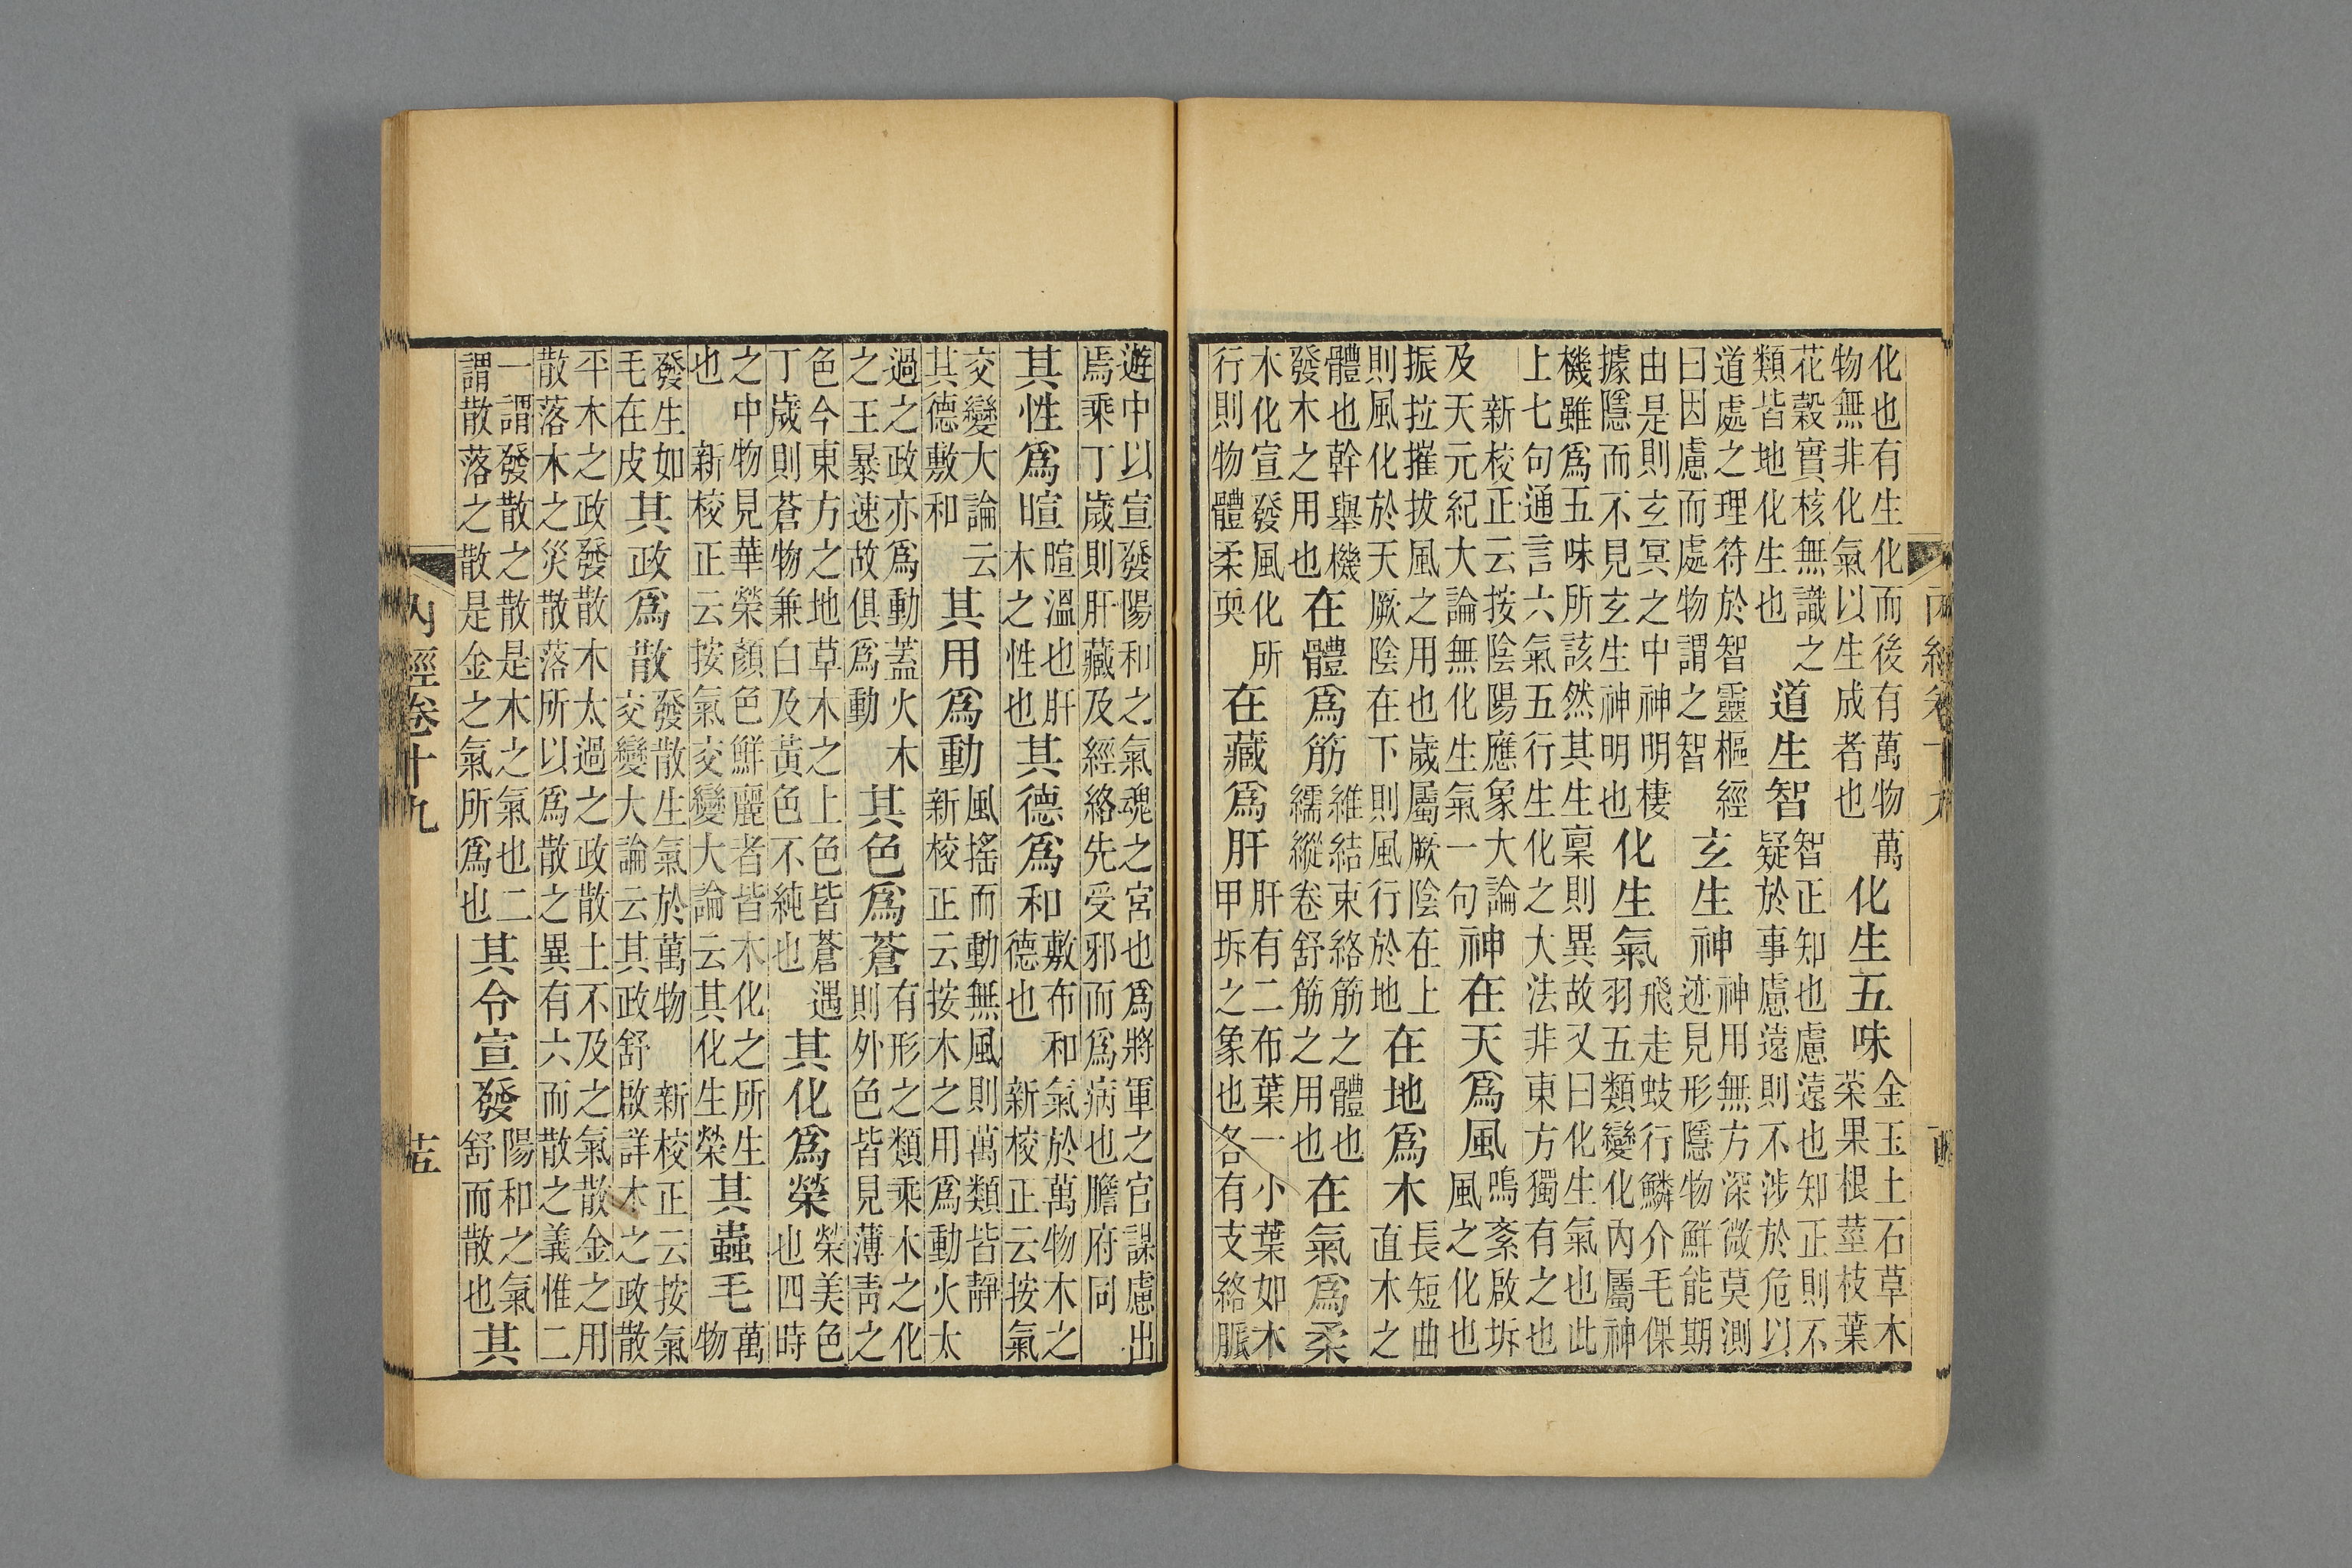 化也有生化而後有萬物萬
物無非化氣以生成者也
化生五味
金玉土石草木
菜果根莖枝葉
花穀實核無識之
類皆地化生也
道生智
智正知也慮遠也知正則不
疑於事慮遠則不涉於危以
道處之理符於智靈樞經
曰因慮而處物謂之智
玄生神
神用無方深微莫測
迹見形隱物鮮能期
由是則玄冥之中神明棲
據隱而不見玄生神明也
化生氣
飛走蚑行鱗介毛倮
羽五類變化內屬神
機雖爲五味所該然其生稟則異故又曰化生氣也此
上七句通言六氣五行生化之大法非東方獨有之也
新校正云按陰陽應象大論
及天元紀大論無化生氣一句
神在天爲風
鳴紊啟坼
風之化也
振拉摧拔風之用也歲屬厥陰在上
則風化於天厥陰在下則風行於地
在地爲木
長短曲
直木之
體也幹舉機
發木之用也
在體爲筋
維結束絡筋之體也
繻縱卷舒筋之用也
在氣爲柔
木化宣發風化所
行則物體柔耎
在藏爲肝
肝有二布葉一小葉如木
甲坼之象也各有支絡脈
遊中以宣發陽和之氣魂之宮也爲將軍之官謀慮出
焉乘丁歲則肝藏及經絡先受邪而爲病也膽府同
其性爲暄
暄溫也肝
木之性也
其德爲和
敷布和氣於萬物木之
德也 新校正云按氣
交變大論云
其德敷和
其用爲動
風搖而動無風則萬類皆靜
新校正云按木之用爲動火太
過之政亦爲動蓋火木
之王暴速故俱爲動
其色爲蒼
有形之類乘木之化
則外色皆見薄青之
色今東方之地草木之上色皆蒼遇
丁歲則蒼物兼白及黃色不純也
其化爲榮
榮美色
也四時
之中物見華榮顏色鮮麗者皆木化之所生
也 新校正云按氣交變大論云其化生榮
其蟲毛
萬
物
發生如
毛在皮
其政爲散
發散生氣於萬物 新校正云按氣
交變大論云其政舒啟詳木之政散
平木之政發散木太過之政散土不及之氣散金之用
散落木之災散落所以爲散之異有六而散之義惟二
一謂發散之散是木之氣也二
謂散落之散是金之氣所爲也
其令宣發
陽和之氣
舒而散也
其
內經卷十九